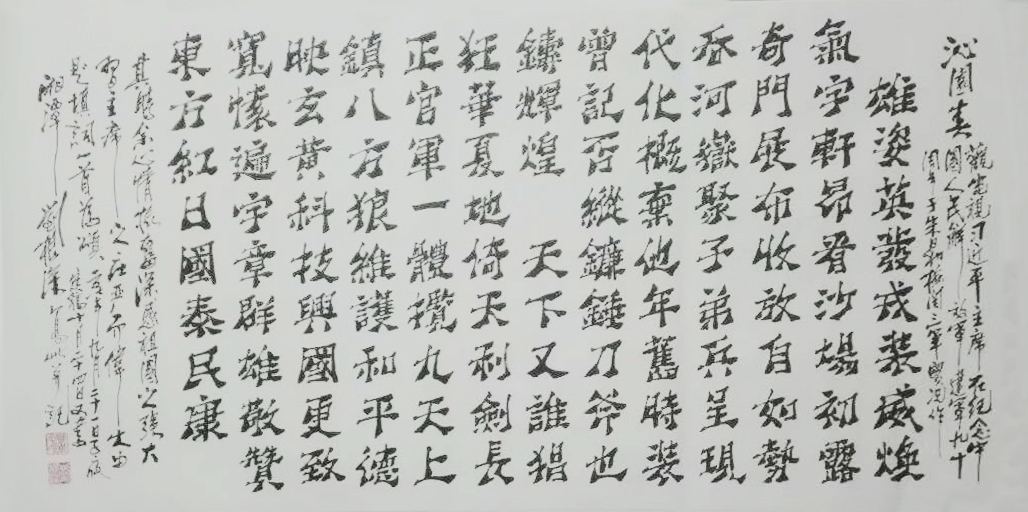 沁園春
觀電視习近平主席在纪念中
國人民解放軍建軍九十
周年于朱日和檢閲三軍實况作
雄姿英發戎裝威煥
氣宇軒昂看沙場初露
奇門展布收放自如勢
吞河嶽聚子弟兵呈現
代化概棄他年舊時裝
曾記否縱鐮錘刀斧也
鑄輝煌 天下又誰猖
狂華夏地倚天利劍長
正官軍一體攬九天上
鎮八方狼維護和平德
映玄黄科技興國更致
寬懷遍宇章群雄敬贊
東方紅日國泰民康
心情振奮深感祖國之強大
習主席之偉大由
是填詞一首為頌 九月二十一日
湘潭 劉 并記